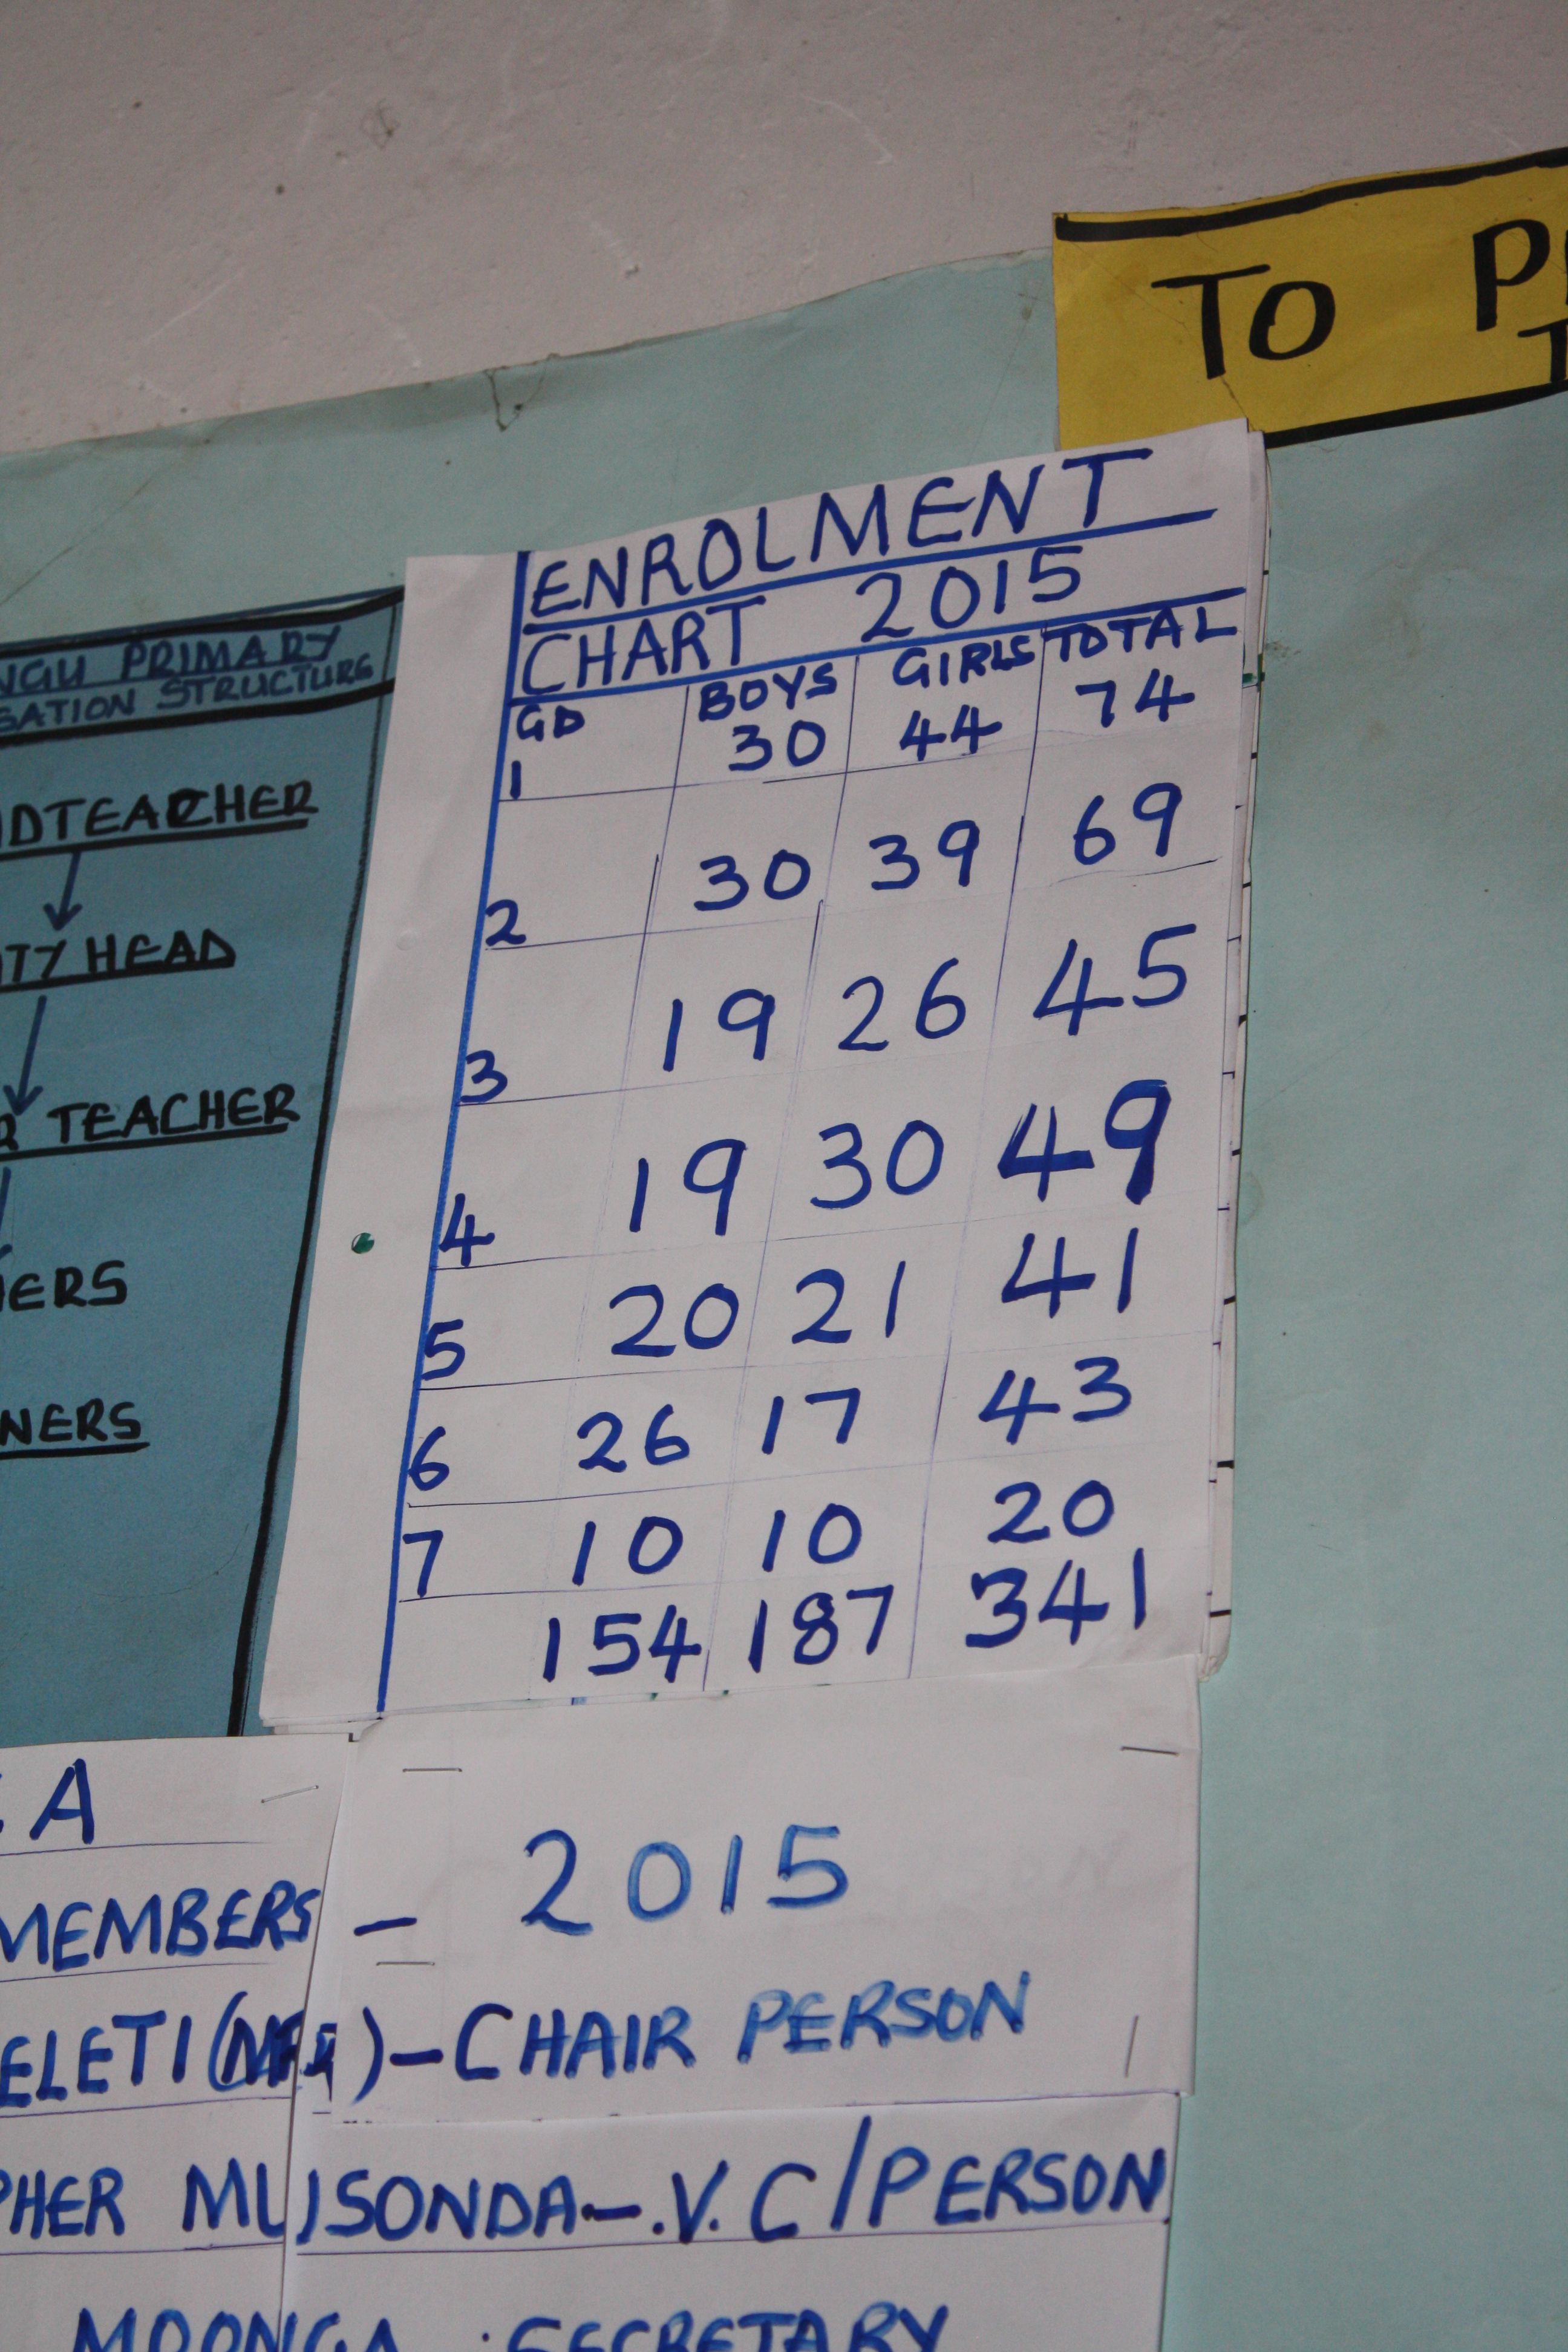 TO
ENROLMENT
CHART 2015
GD BOYS GIRLS TOTAL
1 30 44 74
2 30 39 69
3 19 26 45
4 19 30 49
5 20 21 41
6 26 17 43
7 10 10 20
154 187 341
NGU PRIMARY
SATION STRUCTURE
DTEACHER
TY HEAD
R TEACHER
ERS
NERS
A
MEMBERS - 2015
ELETI ( ) - CHAIR PERSON
PHER MUSONDA - .V. C/PERSON
MOONGA : SECRETARY